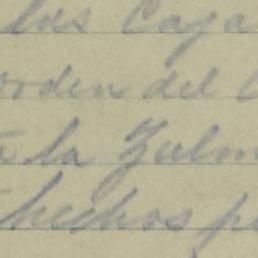 las Caja
orden del
la Zulm
hechos p